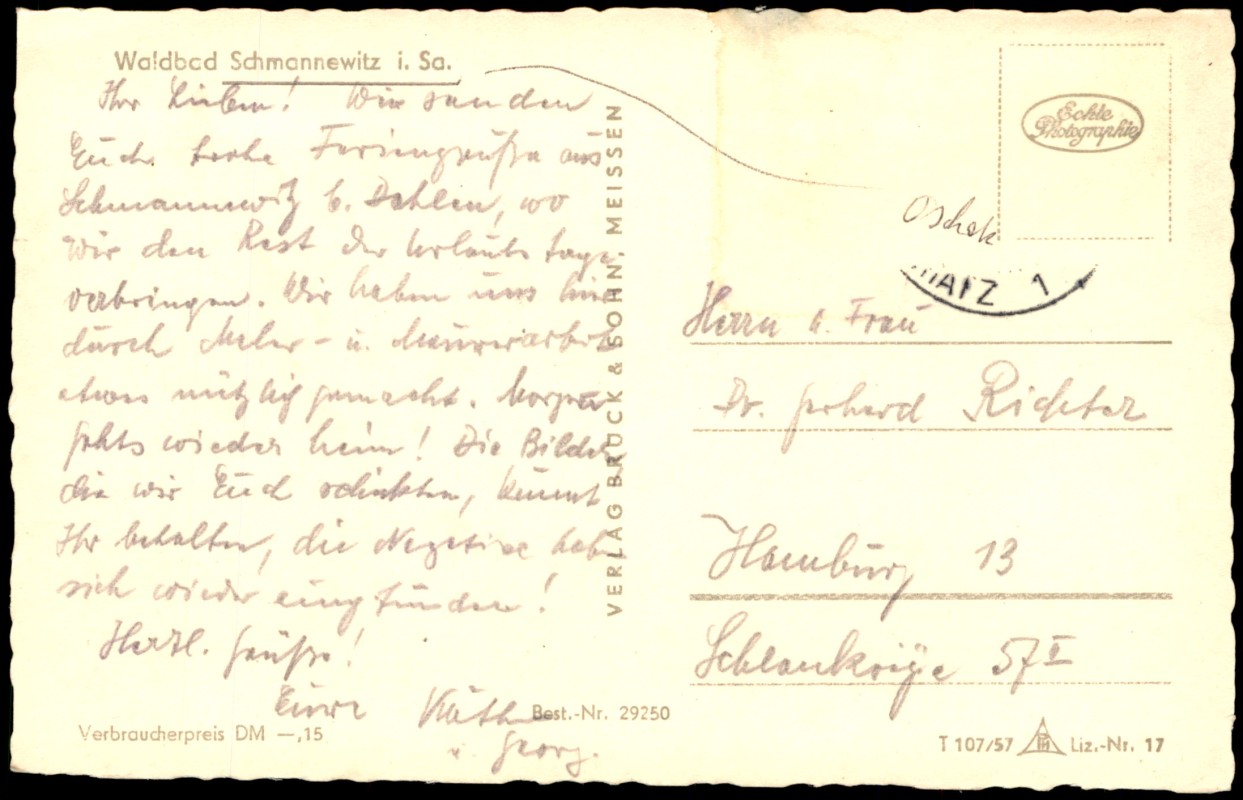 Waldbad Schmannewitz i. Sa.
Ihr Lieben! Wir senden
Euch frohe Feriengrüße aus
Schmannewitz b. Dahlen, wo
wir den Rest der Urlaubstage
verbringen. Wir haben uns hier
durch Maler- u. Maurerarbeit
etwas nützlich gemacht. Morgen
gehts wieder heim! Die Bilder
die wir Euch schickten, könnt
Ihr behalten, die Negative haben
sich wieder eingefunden!
Herzl. Grüße!
Eure Käthe
u. Georg.
Verbraucherpreis DM —,15
Best.-Nr. 29250
VERLAG BRÜCK & SOHN MEISSEN
Echte
Photographie
Oschatz
ATZ 1
Herrn u. Frau
Dr. Gerhard Richter
Hamburg 13
57 II
T 107/57 Liz.-Nr. 17